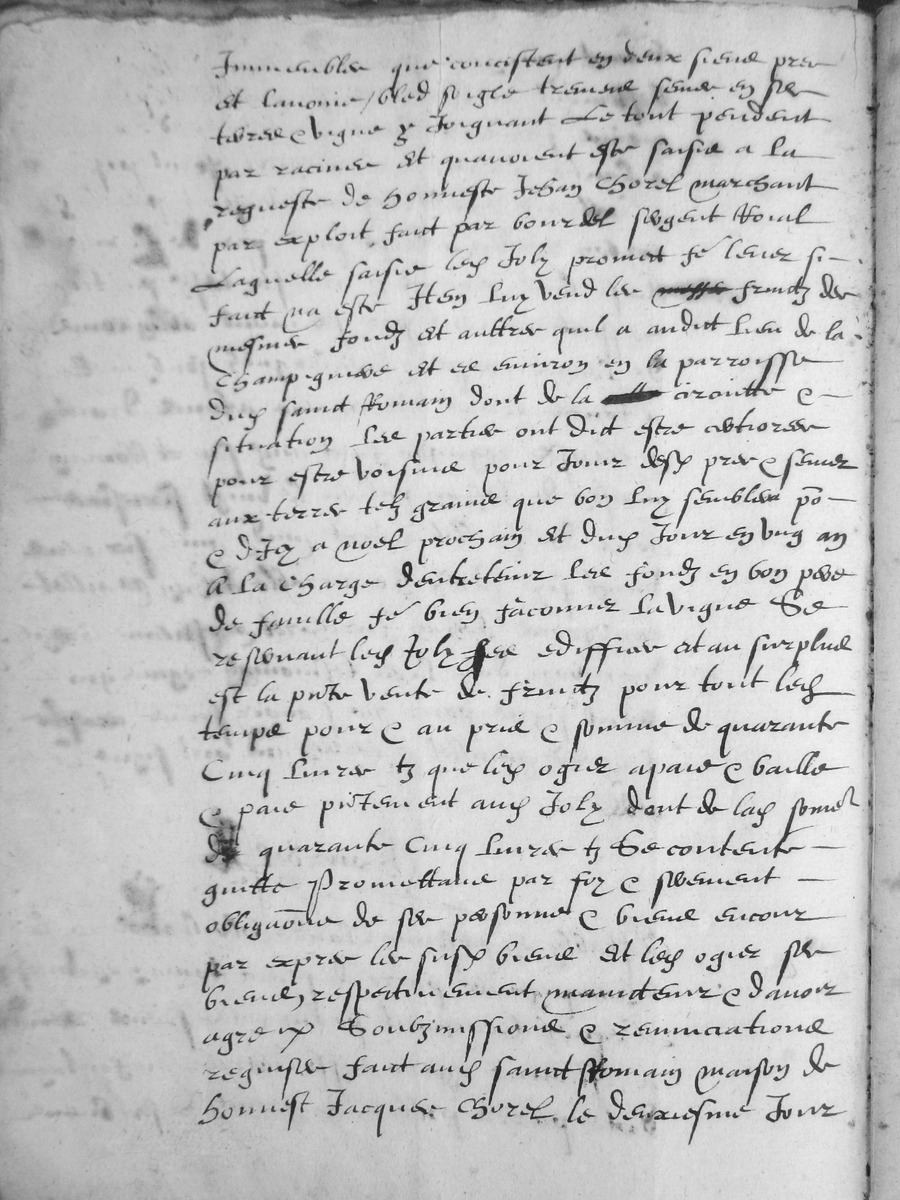 Immeubles que concistent en deux siens prez
et lavoine / bled soigle tremens semes en ses
terres & vigne y Joignant Le tout pendent
par racines et quavoient este saisis a la
requeste de honneste Jehan Chorel marchant
par exploit faict par bourdel sergent Roial
Laquelle saisie led Joly promect fe lever si
faict na este Item luy vend les fruictz des
mesmes fondz et aultres quil a audict lieu de la
Champ et es environ en la parroisse
dud sainct Romain dont de la &
situation les parties ont dict estre certiores
pour estre voisins pour Jouir desd prez & semer
aux terres telz grains que bon luy semblera po
& dIcy a noel prochain et dud Jour en ung an
A la Charge dentretenir les fondz en bon pere
de famille fe bien faconner la vigne Se
reservant led Joly ses ediffices et au surplus
est la pnte vente de fruictz pour tout led
temps pour & au pris & somme de quarante
Cinq livres tz que led ogier a paie & baille
& paie pntement aud Joly dont de lad some
de quarante Cinq livres tz Se contente
quitte Promettans par foy & serement
obligaone de ses personne & biens encour
par expres les susd biens Et led ogier ses
biens respectivement maintenir & davoir
agre Soubzmissions & renunciations
requises faict aud sainct Romain maison de
honnest Jacques Chorel le deuxiesme Jour